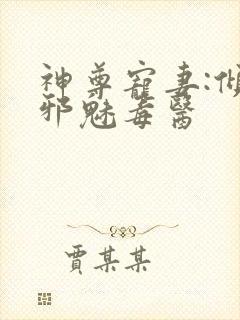 神尊寵妻:傾
邪魅毒醫
賈某某